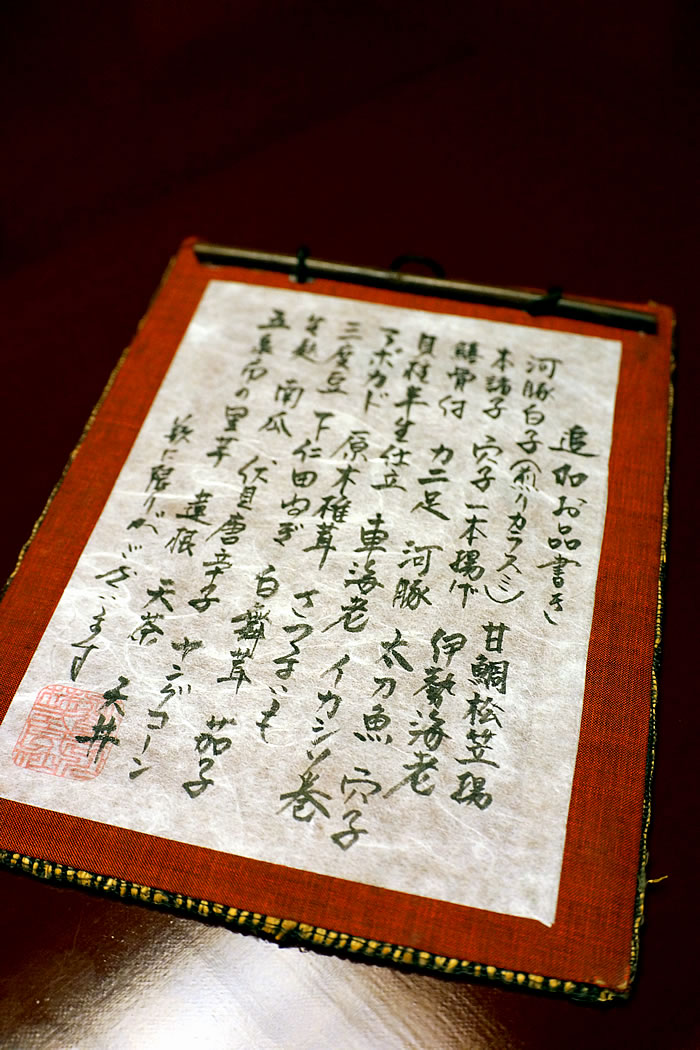 追加お品書き
河豚白子(煎りカラスミ) 甘鯛松笠揚
本諸子 穴子一本揚げ 伊勢海老
鱧骨付 カニ足 河豚 太刀魚 穴子
貝柱半生仕立 車海老 イカシソ巻
アボカド 原木椎茸 さつまいも
三度豆 下仁田ねぎ 白舞茸 茄子
南瓜 伏見唐辛子 ヤングコーン
五泉市の里芋 蓮根 天茶 天丼
数に限りがございます